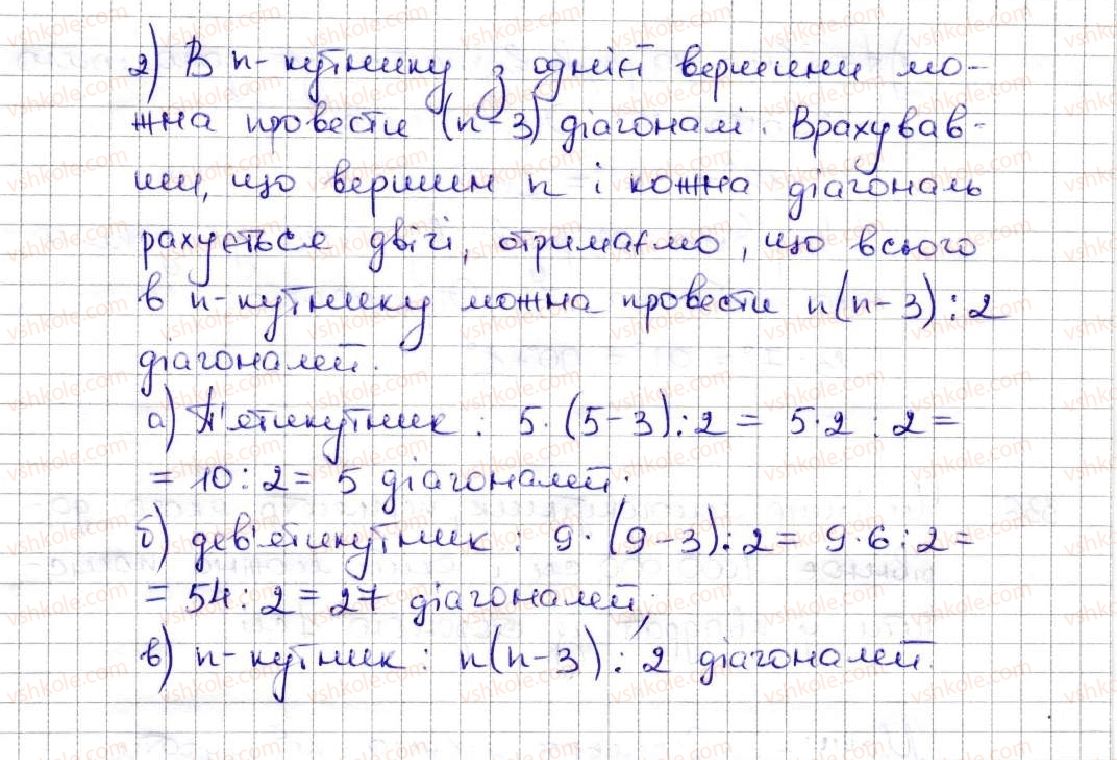 2) В n-кутнику з однієї вершини мо-
жна провести (n-3) діагоналі. Врахував-
ши, що вершин n і кожна діагональ
рахується двічі, отримаємо, що всього
в n-кутнику можна провести n(n-3):2
діагоналей.
а) П'ятикутник: 5·(5-3):2 = 5·2:2 =
= 10:2 = 5 діагоналей;
б) дев'ятикутник: 9·(9-3):2 = 9·6:2 =
= 54:2 = 27 діагоналей;
в) n-кутник: n(n-3):2 діагоналей.